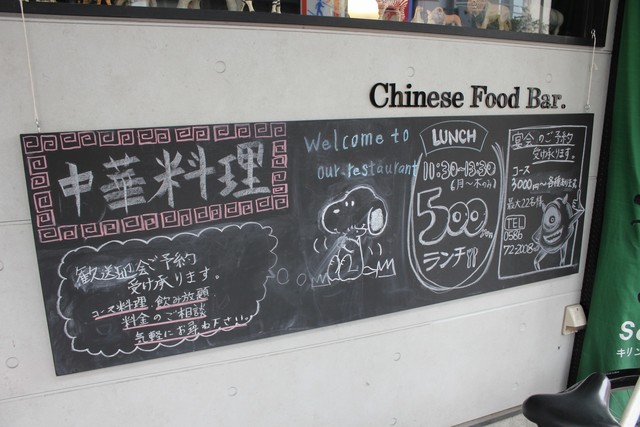 Chinese Food Bar.
中華料理
歓送迎会ご予約
受け承ります。
コース料理、飲み放題
料金のご相談
気軽にお尋ね下さい。
Welcome to
our restaurant
LUNCH
11:30~13:30
(月~木のみ)
500yen
ランチ
宴会のご予約
受け承ります。
コース
3000円~各種あります
最大22名様
TEL
0586
72-2008
S
キリン